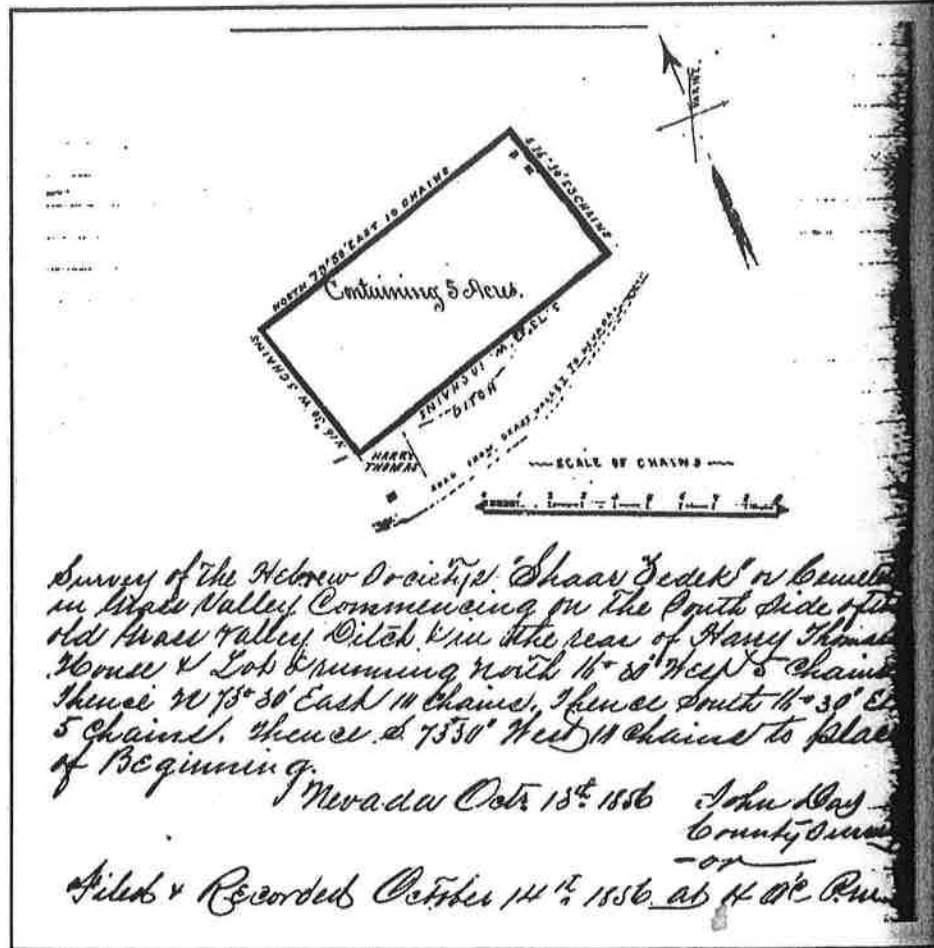 VAR. N.E.
S 16° 30' E 5 CHAINS
NORTH 70° 50' EAST 10 CHAINS
Containing 5 Acres.
N 16° 30 W 5 CHAINS
S. 73° W. 10 CHAINS
DITCH
HARRY
THOMAS
ROAD FROM GRASS VALLEY TO NEVADA
SCALE OF CHAINS
Survey of the Hebrew Society's "Shaar Zedek" or Cemet
in Grass Valley Commencing on the South Side of the
old Grass Valley Ditch & in the rear of Harry Thomas
House & Lot & running north 16° 30' West 5 Chains
Thence N 75° 30' East 10 Chains. Thence South 16° 30' E
5 Chains. Thence S. 75°30' West 10 Chains to place
of Beginning.
Nevada Octr. 13th 1856 John Day
County Surv
or
Filed & Recorded October 14th 1856 at 4 O'C P.M.